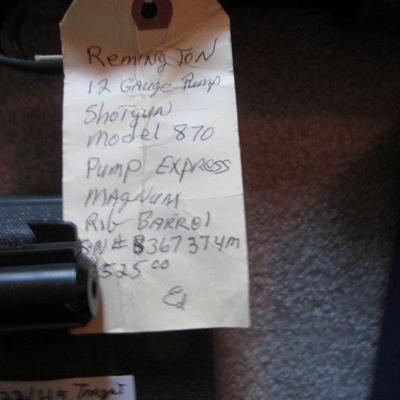 Remington
12 Gauge Pump
Shotgun
Model 870
Pump Express
Magnum
Rib Barrel
SN# B367374M
$525.00
Ed
Target